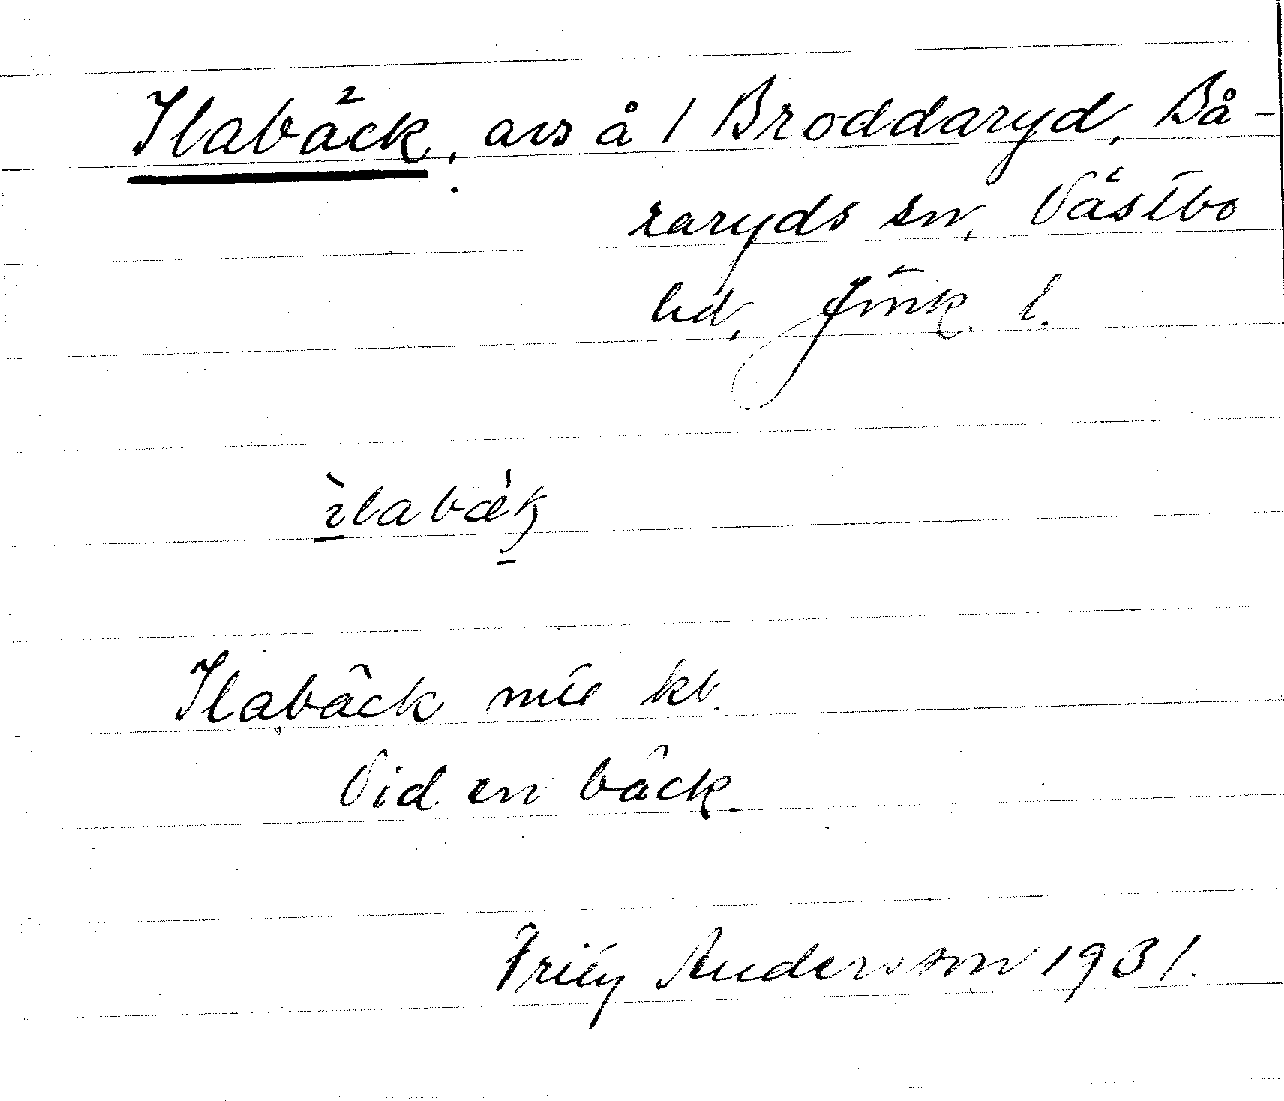 Ilabäck, avs å 1 Broddaryd, Bå-
raryds sn, Västbo
hd, Jönk. l.
ìlabæ̀k
Ilabäck mtl kb.
Vid en bäck.
Andersson 1931.